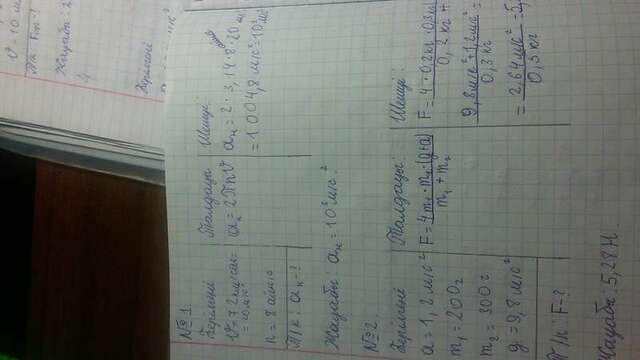 №1
Берілгені
V=72 км/сағ=
n = 8 айн/с
Т/к: aн-?
Талдауы
aн=2πnV
Шешуі:
aн = 2·3,14·8·20 м/с
=1004,8 м/с²=10³м/с²
Жауабы: aн=10³м/с²
№2
Берілгені
a = 1,2 м/с²
m₁ = 200г
m₂ = 300г
g = 9,8 м/с²
Т/к: F-?
Талдауы:
F = 4m₁·m₂·(g+a)
m₁ + m₂
Шешуі:
F = 4·0,2кг·0,3кг
0,2 кг +
9,8м/с²+1,2м/с² =
0,3кг
= 2,64 м/с² = 5,
0,5кг
Жауабы: 5,28Н